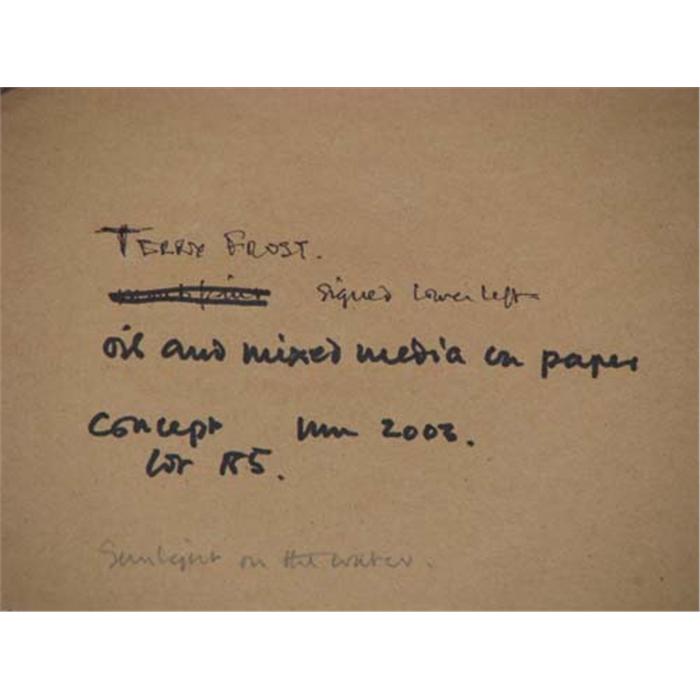 TERRY FROST.
signed lower left
oil and mixed media on paper
Concept 2003.
lot 185.
Sunlight on the water.